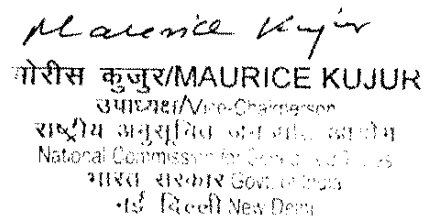 Maurice Kujur
मोरीस कुजुर/MAURICE KUJUR
उपाध्यक्ष/Vice-Chairperson
राष्ट्रीय अनुसूचित जन जाति आयोग
National Commission for Scheduled Tribes
भारत सरकार Govt. of India
नई दिल्ली New Delhi